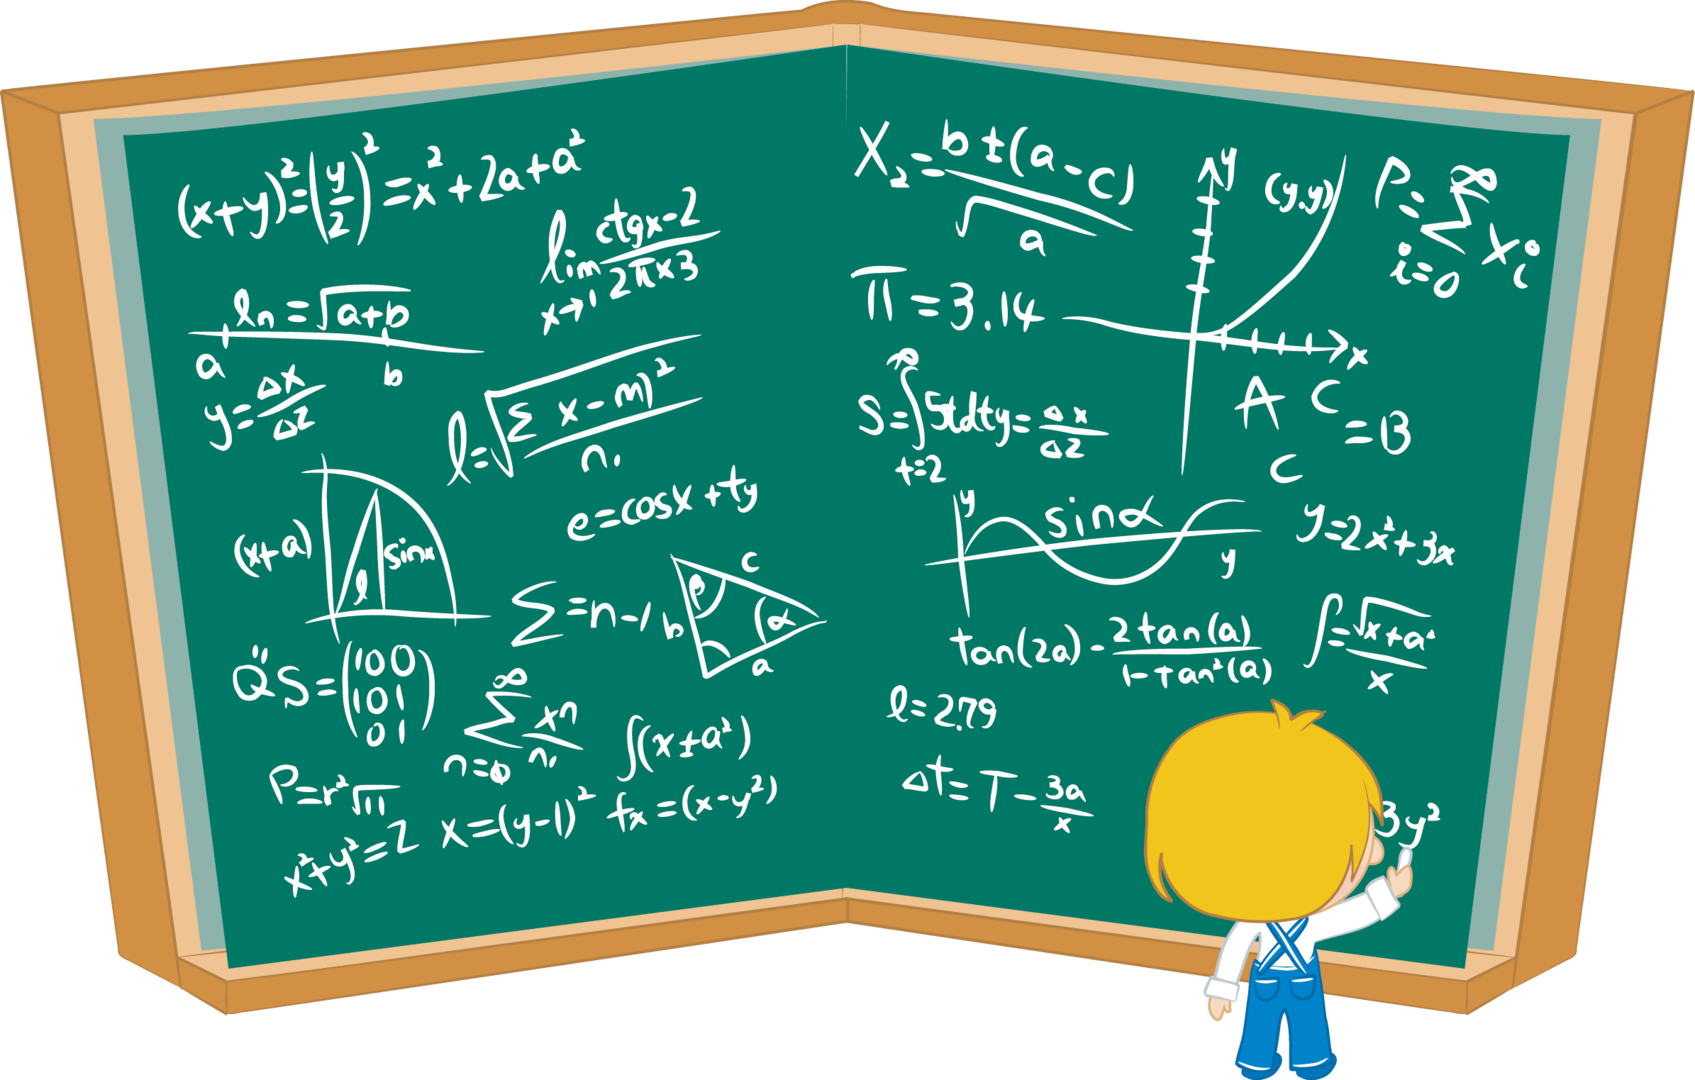 (x+y)²=(y/2)²=x²+2a+a²
lim x→1 ctgx-2/2πx3
ln=√a+b
a b
y=Δx/Δz
l=√Σ x-m)²/n.
e=cosx+ty
(x+a) l sinx
Σ=n-1
c b a α
Q̈S=(100
101
01)
∞ Σ n=0 xn/n.
∫(x±a²)
P=r²√π
x=(y-1)²
fx=(x-y²)
x²+y²=2
X₂=b±(a-c)/√a
y (y.y) x
P=∞ Σ i=0 xi
π=3.14
S=∫ t=2 5tdty=Δx/Δz
A C =B
C
y sinα y
y=2x²+3x
tan(2a)-2tan(a)/1-tan²(a)
∫=√x+a²/x
l=2.79
Δt=T-3a/x
3y²